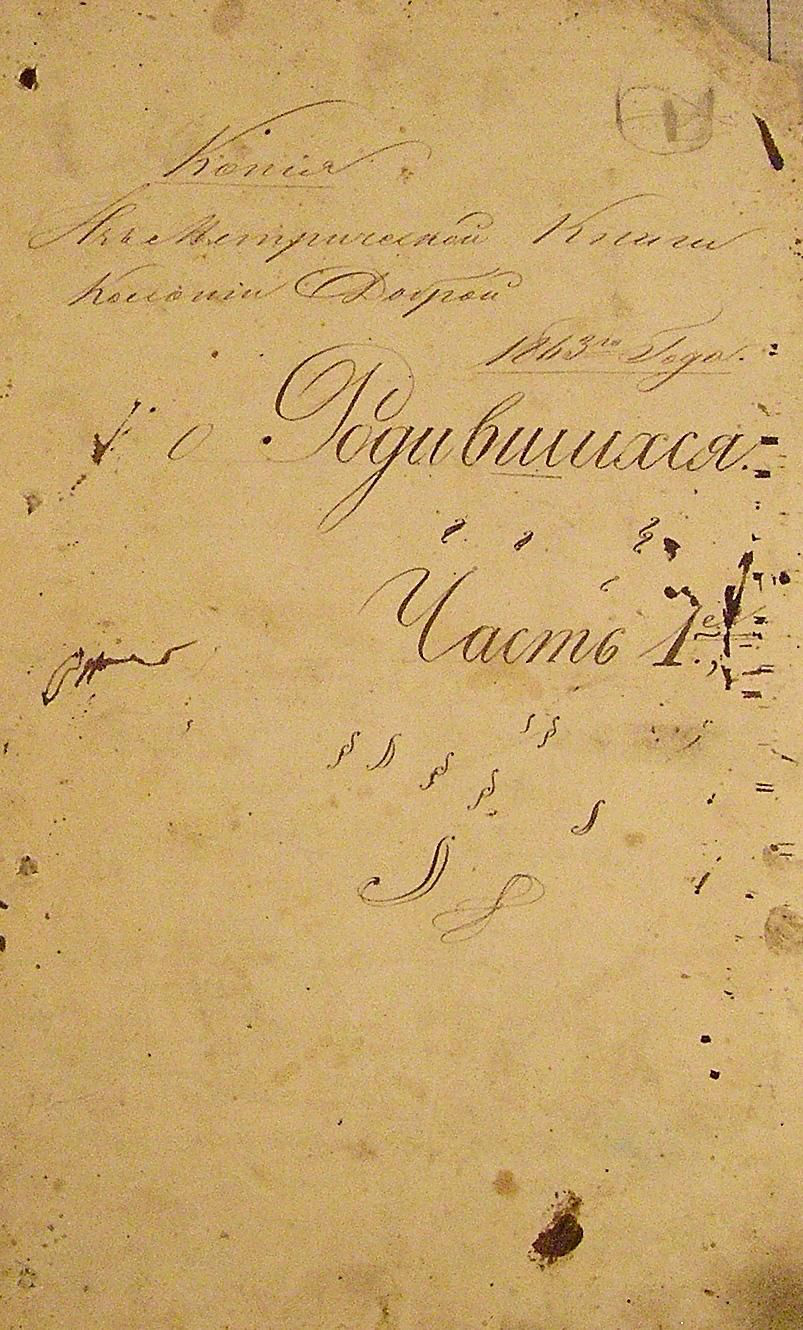 Копія
Изъ Метрической Книги
Колоніи Доброй
1863го Года.
О Родившихся.
Часть 1ая